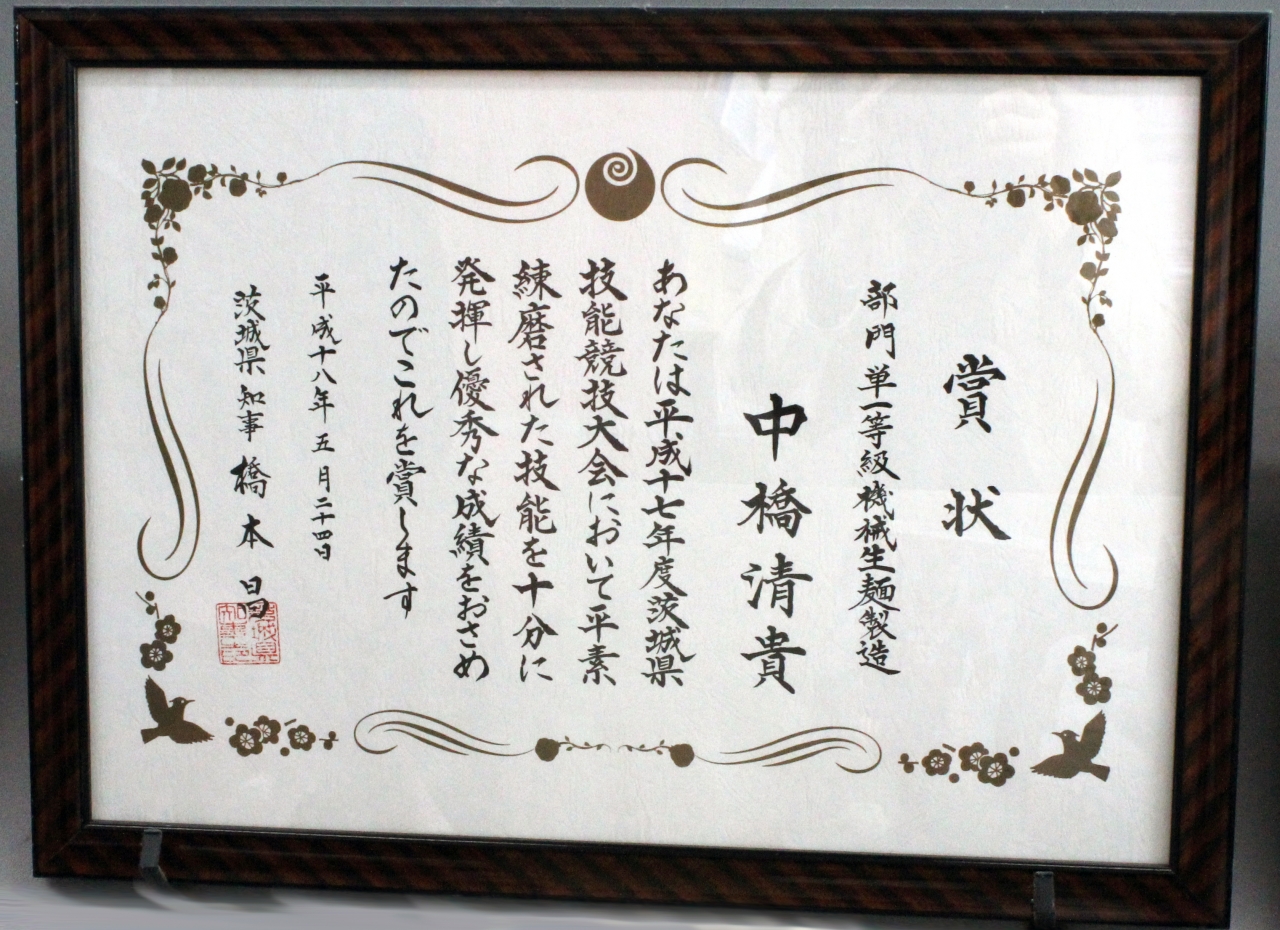 賞状
部門 単一等級 機械生麺製造
中橋清貴
あなたは平成十七年度茨城県
技能競技大会において平素
練磨された技能を十分に
発揮し優秀な成績をおさめ
たのでこれを賞します
平成十八年五月二十四日
茨城県知事 橋本昌